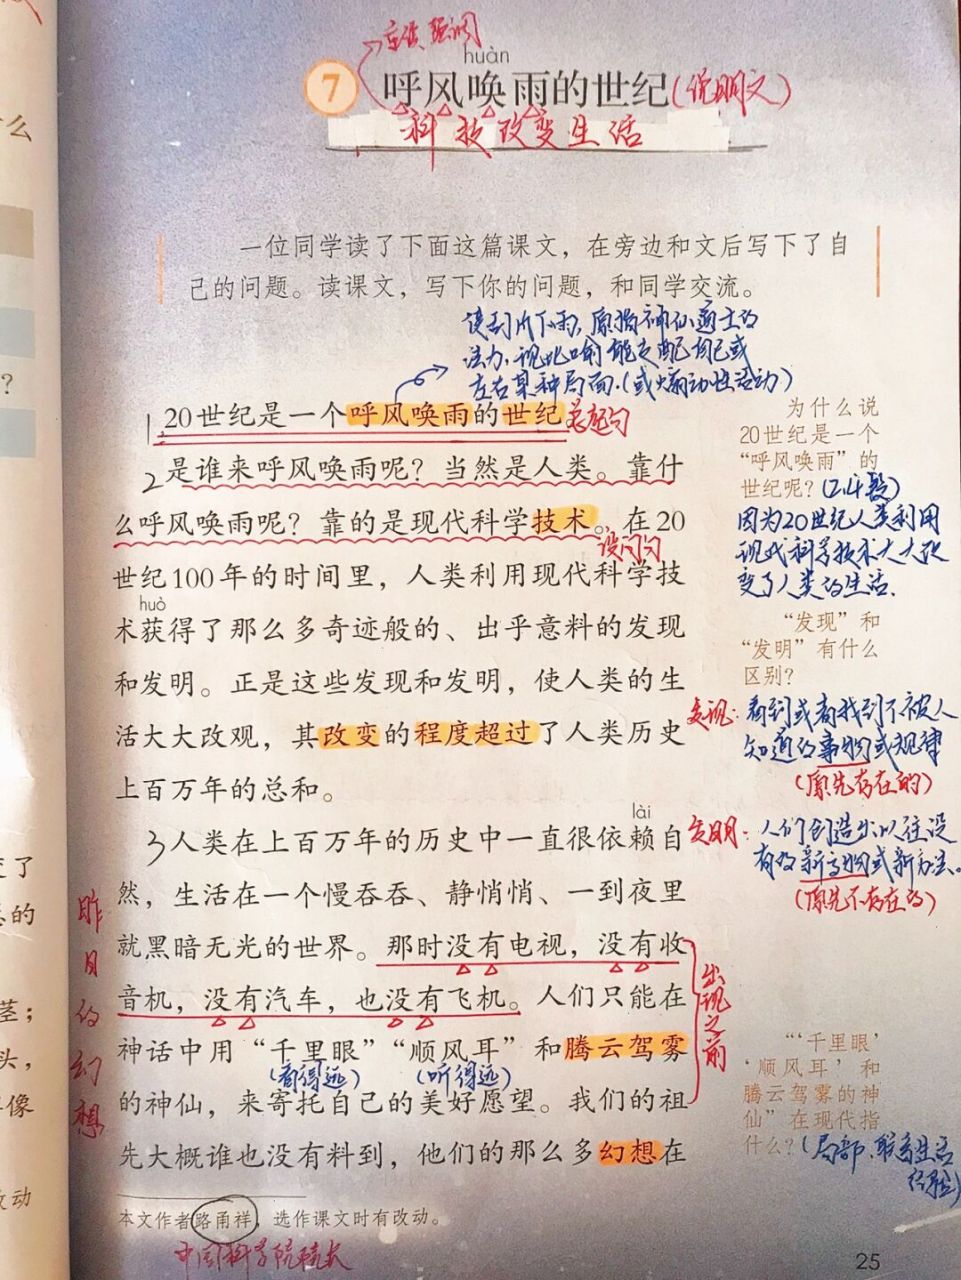 重读强调
huàn
7 呼风唤雨的世纪(说明文)
科技改变生活
一位同学读了下面这篇课文，在旁边和文后写下了自
己的问题。读课文，写下你的问题，和同学交流。
原指神仙道士的
法力，现比喻能支配自己或
左右某种局面.(或煽动性活动)
1 20世纪是一个呼风唤雨的世纪 总起句
2 是谁来呼风唤雨呢？当然是人类。靠什
么呼风唤雨呢？靠的是现代科学技术。在20
设问句
世纪100年的时间里，人类利用现代科学技
huò
术获得了那么多奇迹般的、出乎意料的发现
和发明。正是这些发现和发明，使人类的生
活大大改观，其改变的程度超过了人类历史
上百万年的总和。
lài
3 人类在上百万年的历史中一直很依赖自
然，生活在一个慢吞吞、静悄悄、一到夜里
就黑暗无光的世界。那时没有电视，没有收
音机，没有汽车，也没有飞机。人们只能在
神话中用“千里眼”“顺风耳”和腾云驾雾
(看得远) (听得远)
的神仙，来寄托自己的美好愿望。我们的祖
先大概谁也没有料到，他们的那么多幻想在
出现之前
昨日的幻想
为什么说
20世纪是一个
“呼风唤雨”的
世纪呢？(2.4段)
因为20世纪人类利用
现代科学技术大大改
变了人类的生活.
“发现”和
“发明”有什么
区别？
发现：看到或者找到不被人
知道的事物或规律
(原先存在的)
发明：人们创造出以往没
有的新事物或新办法。
(原先不存在的)
“‘千里眼’
‘顺风耳’和
腾云驾雾的神
仙”在现代指
什么？(局部.联系生活
经验)
本文作者路甬祥，选作课文时有改动。
中国科学院院长
25
么
？
了
的
茎；
头，
像
动